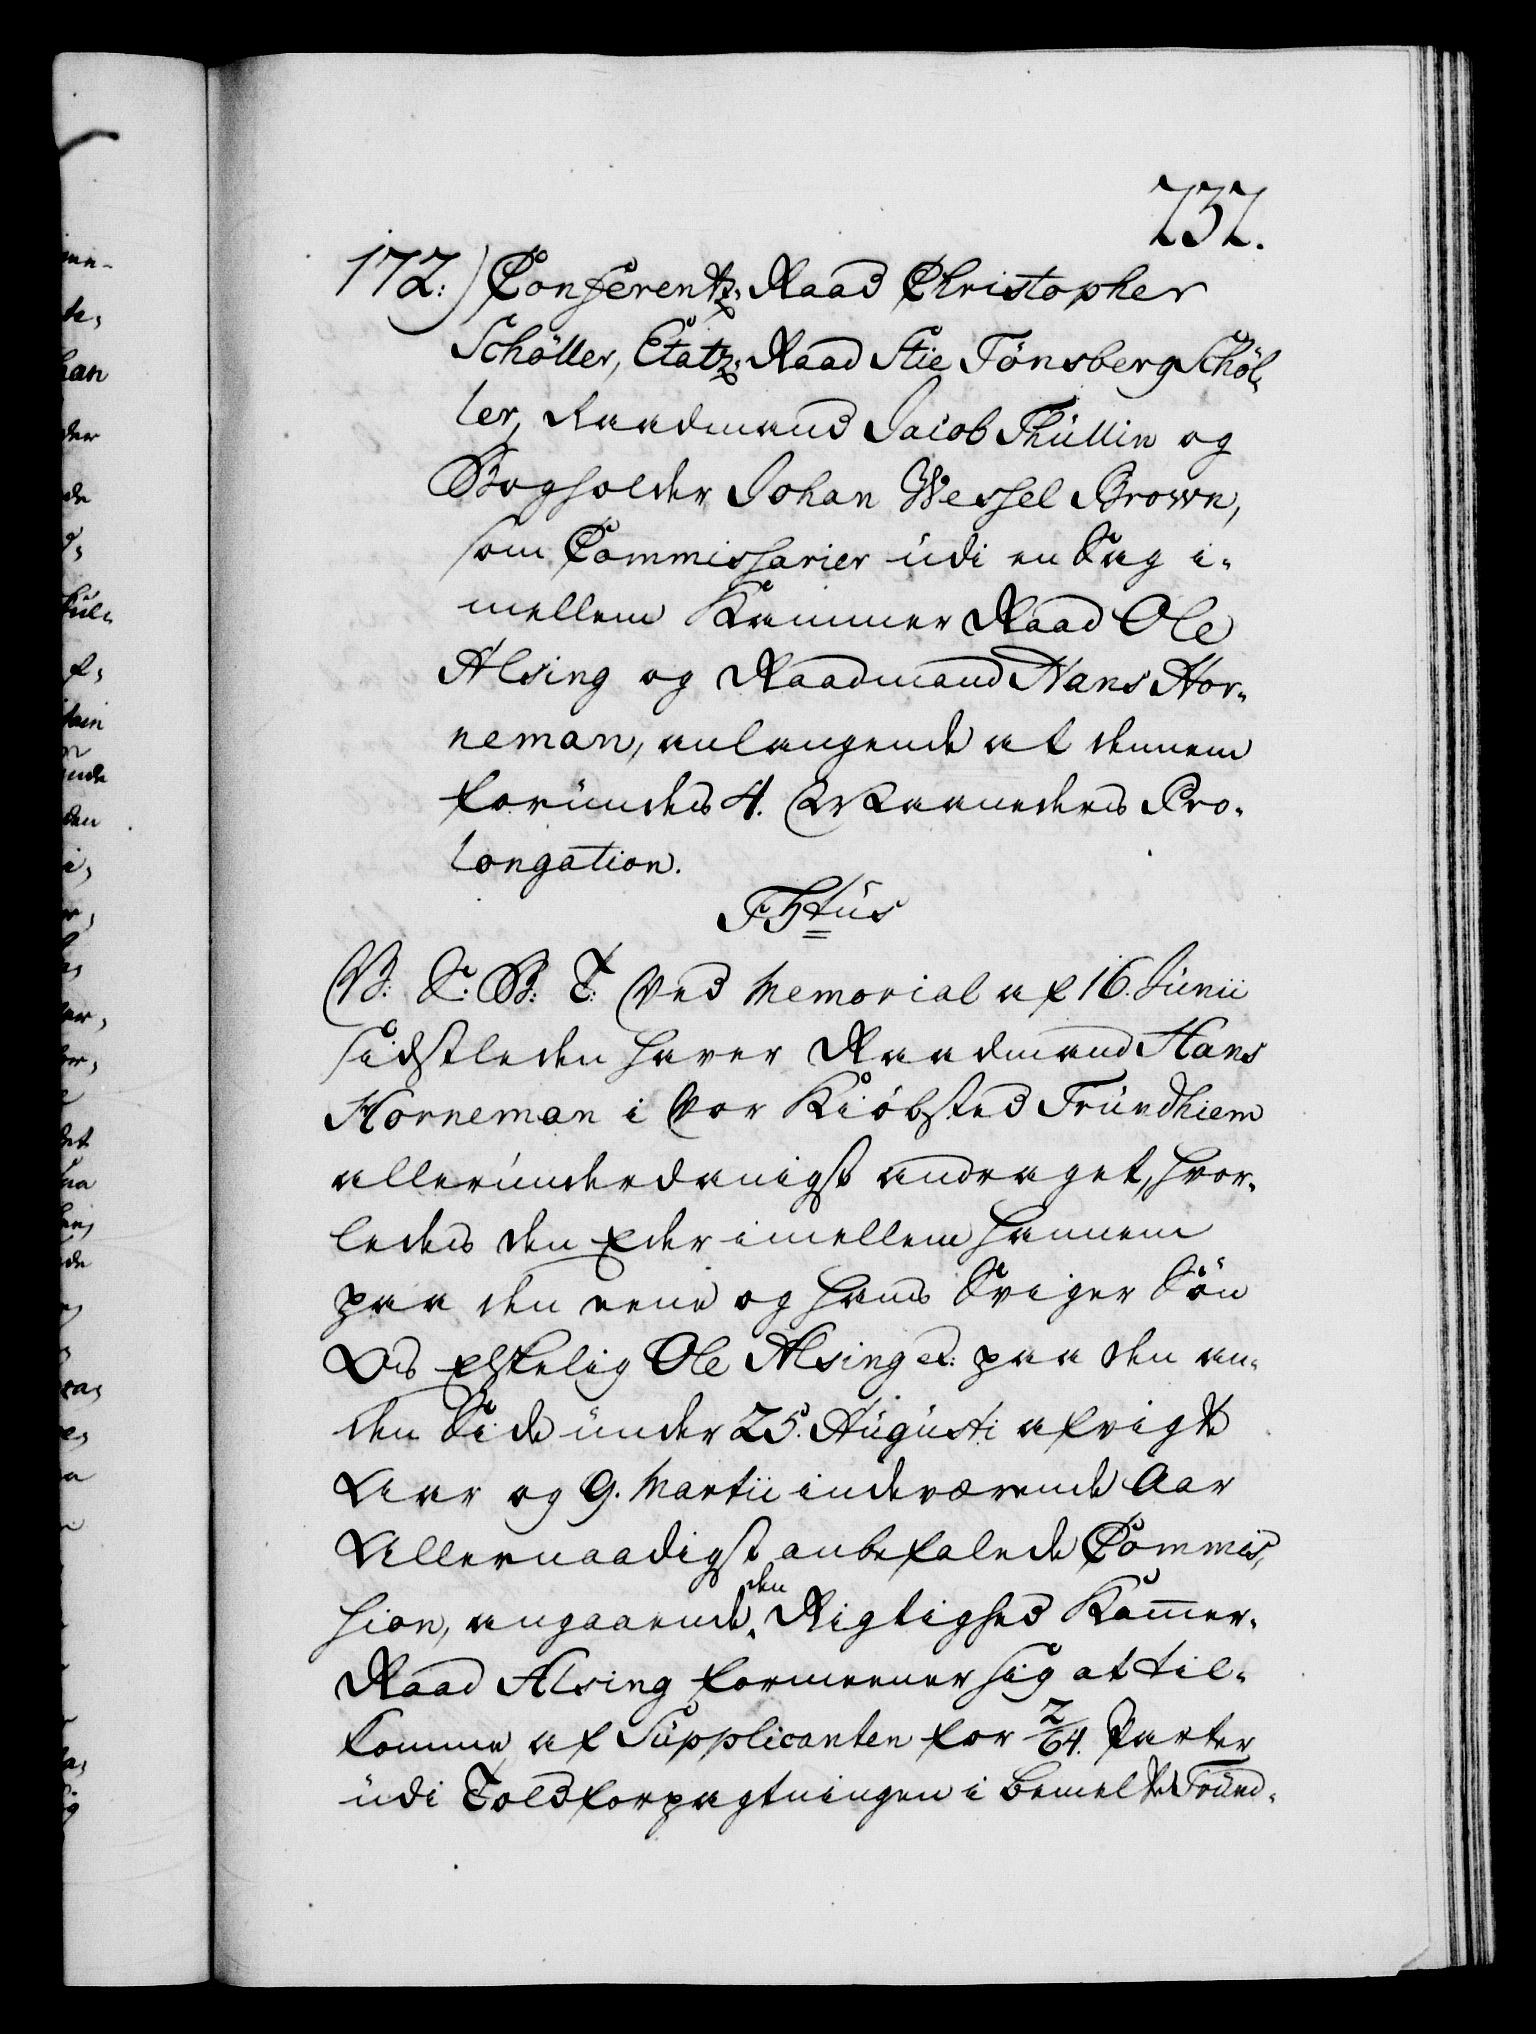 232.
172:) Conferentz-Raad Christopher
Schöller, Etatz-Raad Stie Tönsberg Schöl-
ler, Raadmand Jacob Thüllin og
Bogholder Johan Wessel Brown,
som Commissarier udi en Sag i-
mellem Kammer Raad Ole
Alsing og Raadmand Hans Hor-
neman, anlangende at dennem
forundes 4. Maaneders Pro-
longation.
V: S: B: T: Ved Memorial af 16. Junii
sidstleden haver Raadmand Hans
Horneman i Vor Kiöbsted Trundhiem
allerunderdanigst andraget, hvor-
ledes den Eder imellem hannem
paa den eene og hans Sviger Sön
Os Elskelig Ole Alsing etc: paa den an-
den Side under 25. Augusti afvigte
Aar og 9. Martii indeværende Aar
Allernaadigst anbefalede Commis-
sion, angaaende den Rigtighed Kammer-
Raad Alsing formeener sig at til-
komme af Supplicanten for 2/64. Parter
udi Toldforpagtningen i bemelte Trund-